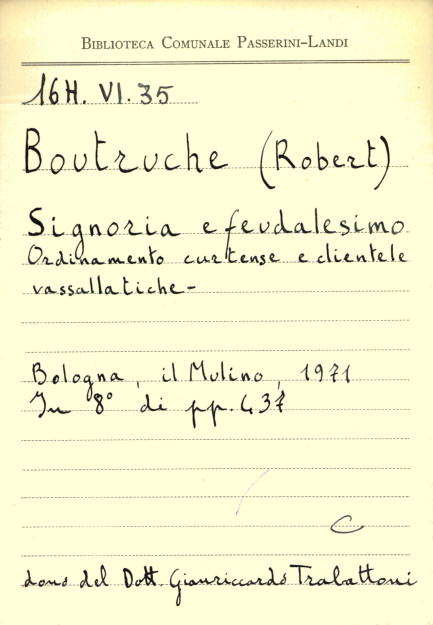 BIBLIOTECA COMUNALE PASSERINI-LANDI
16H. VI. 35
Boutruche (Robert)
Signoria e feudalesimo
Ordinamento curtense e clientele
vassallatiche-
Bologna, il Mulino, 1971
In 8° di pp. 437
C
dono del Dott. Gianriccardo Trabattoni